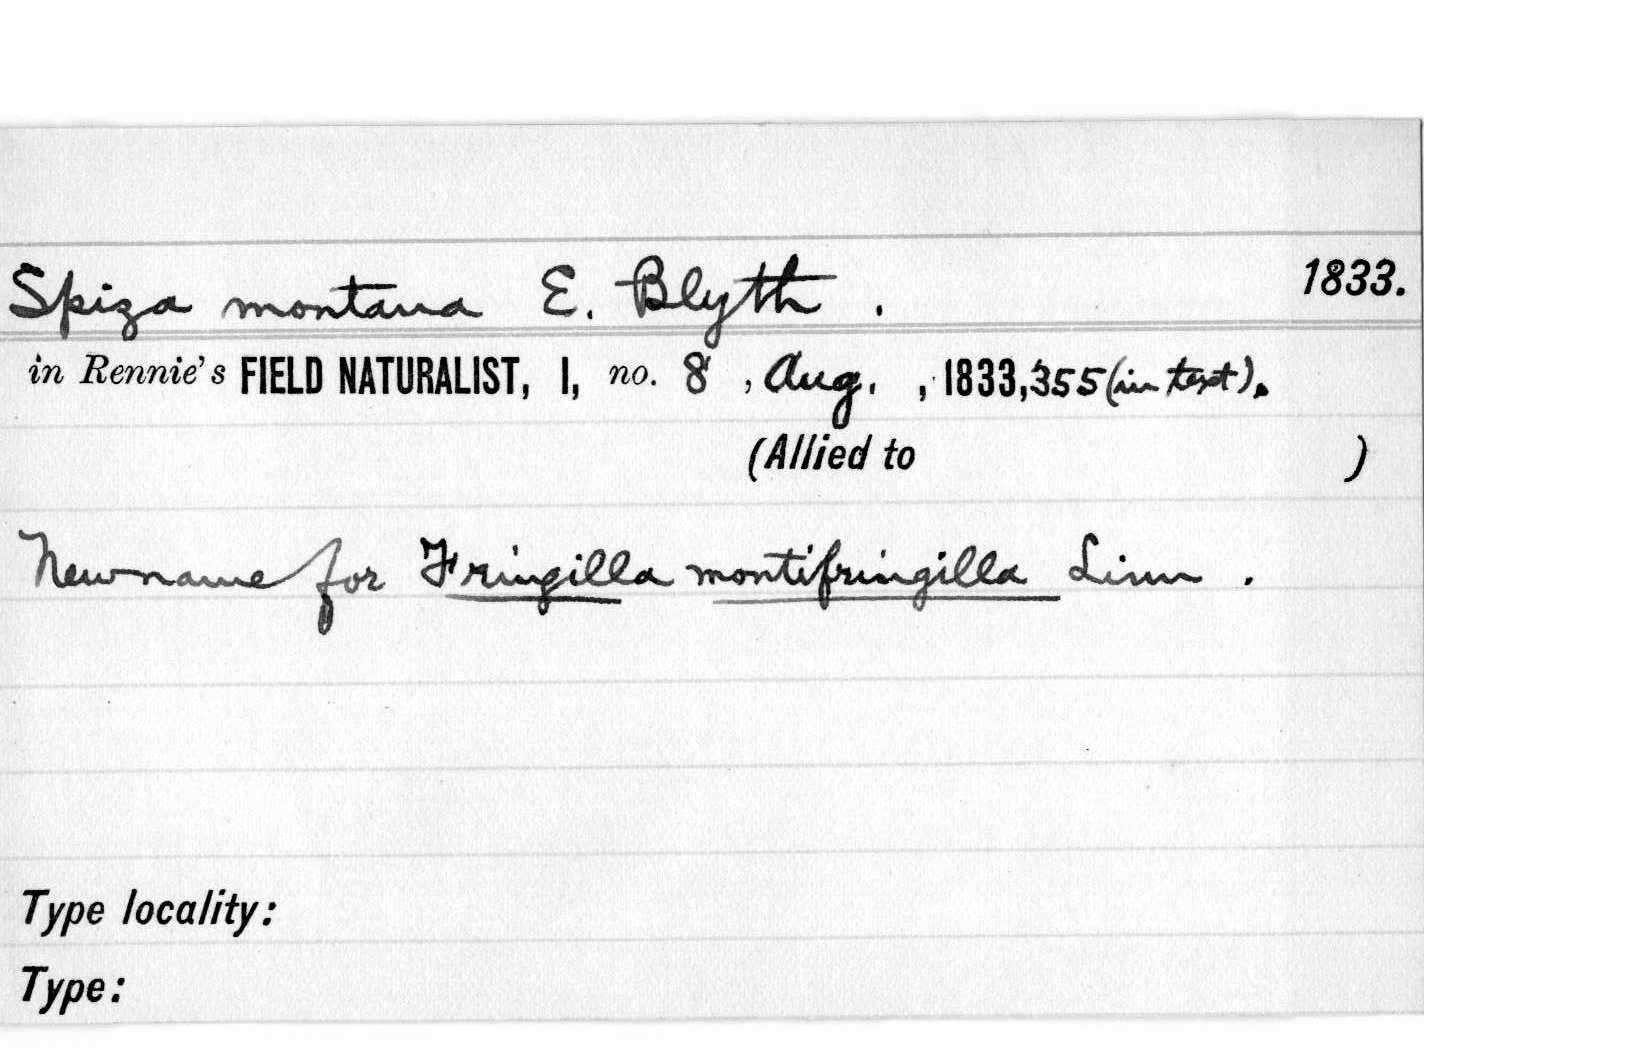 Spiza montana E. Blyth . 1833.
in Rennie's FIELD NATURALIST, I, no. 8 , Aug. , 1833, 355 (in text).
(Allied to )
New name for Fringilla montifringilla Linn .
Type locality:
Type: